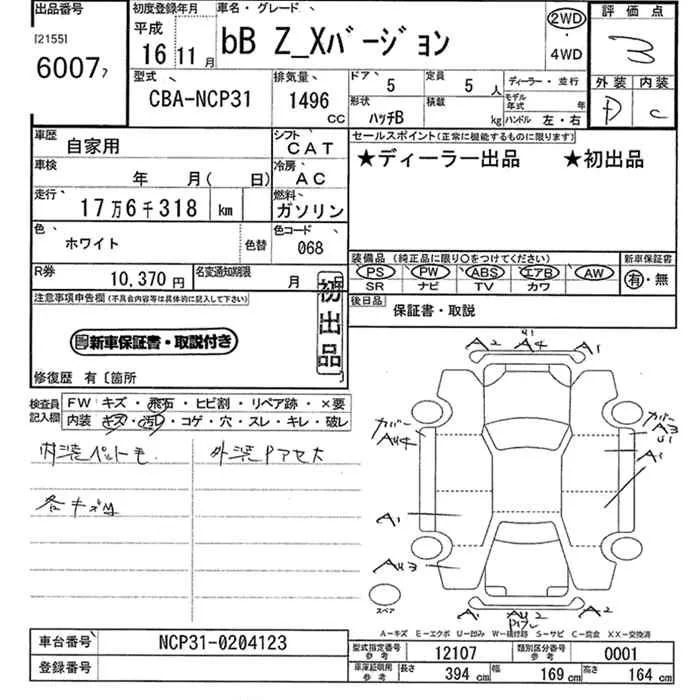 出品番号 初度登録年月 車名・グレード
[2155] 平成 bB Z_Xバージョン 2WD ・ 4WD
6007 16 11月
評価点
3
外装 内装
D C
型式 排気量 ドア 定員 ディーラー・並行
CBA-NCP31 1496 CC 5 5 人 モデル年式 年
形状 積載
ハッチB kg ハンドル 左・右
車歴 自家用 シフト CAT
セールスポイント(正常に機能するものに限ります)
★ディーラー出品 ★初出品
車検 年 月( 日) 冷房 AC
走行 17万6千318 km 燃料 ガソリン
色 ホワイト 色替 色コード 068
装備品 (純正品に限り○をつけてください) 新車保証書
PS PW ABS エアB AW 有・無
SR ナビ TV カワ
R券 10,370円 名変通知期限 月 日
後日品 保証書・取説
注意事項申告欄(不具合内容等は具体的に記入して下さい)
初出品
新車保証書・取説付き
修復歴 有〔箇所
検査員記入欄 FW キズ・飛石・ヒビ割・リペア跡・×要
内装 キズ・汚レ・コゲ・穴・スレ・キレ・破レ
内装ペット毛 外装PアセL
各キズ凹
A2 U1 A4 A1
カバー AU4
カバー A3 U1
A1
A1
AU3
スペア
A1 AU2 A2
A-キズ E-エクボ U-凹み W-補修跡 S-サビ C-腐食 XX-交換済
車台番号 NCP31-0204123
登録番号
型式指定番号 参考 12107 類別区分番号 参考 0001
車庫証明用 参考 長さ 394 cm 幅 169 cm 高さ 164 cm